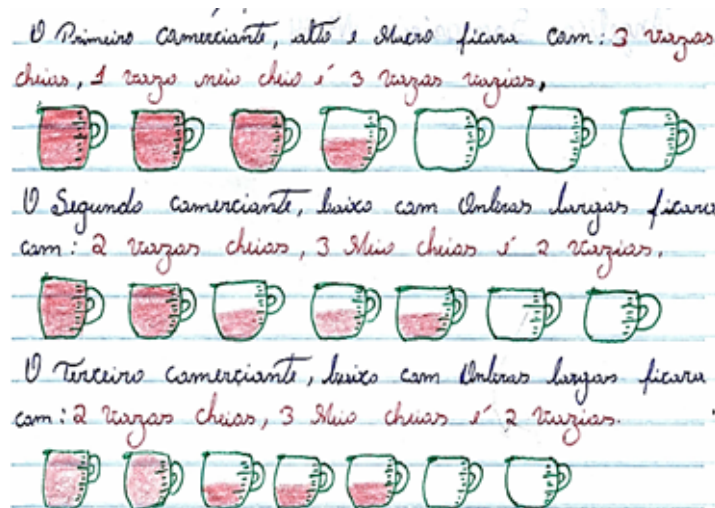 O Primeiro comerciante, alto e Macro ficara com: 3 vazas
cheias, 1 vazo meio cheio é 3 vazas vazias,
O Segundo comerciante, baixo com Onbras largas ficara
com: 2 vazas cheias, 3 Meio cheias é 2 vazias.
O Terceiro comerciante, baixo com Onbras largas ficara
com: 2 vazas cheias, 3 Meio cheias é 2 vazias.